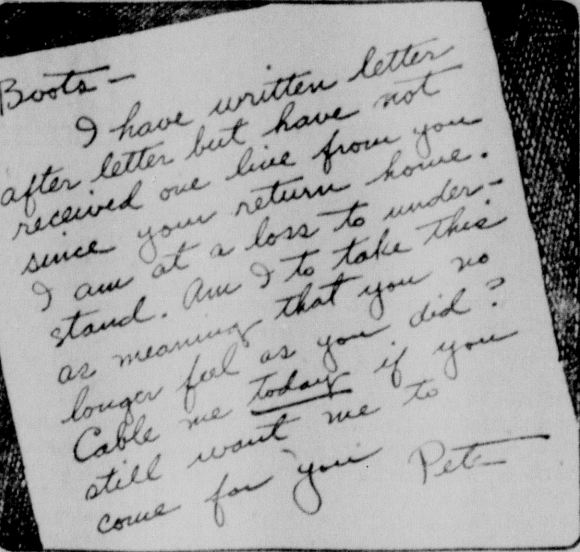 Boots—
I have written letter
after letter but have not
received one line from you
since your return home.
I am at a loss to under-
stand. Am I to take this
as meaning that you no
longer feel as you did?
Cable me today if you
still want me to
come for you Pete